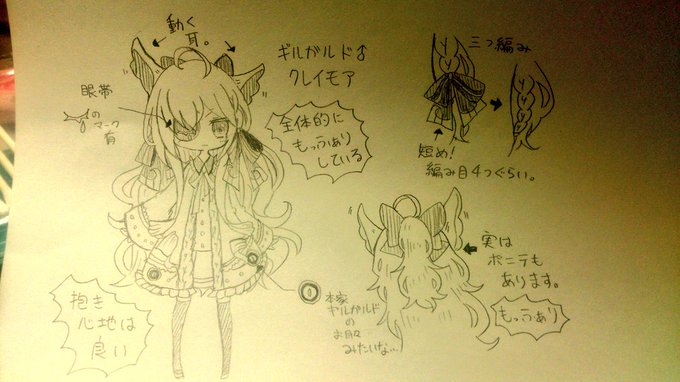 動く
耳。
ギルガルド♂
クレイモア
眼帯
の
マーク
有
全体的に
もっふぁり
している
三つ編み
短め!
編み目4つぐらい。
実は
ポニテも
あります。
もっふぁり
抱き
心地は
良い
本家
ギルガルド
の
お腹
みたいな…